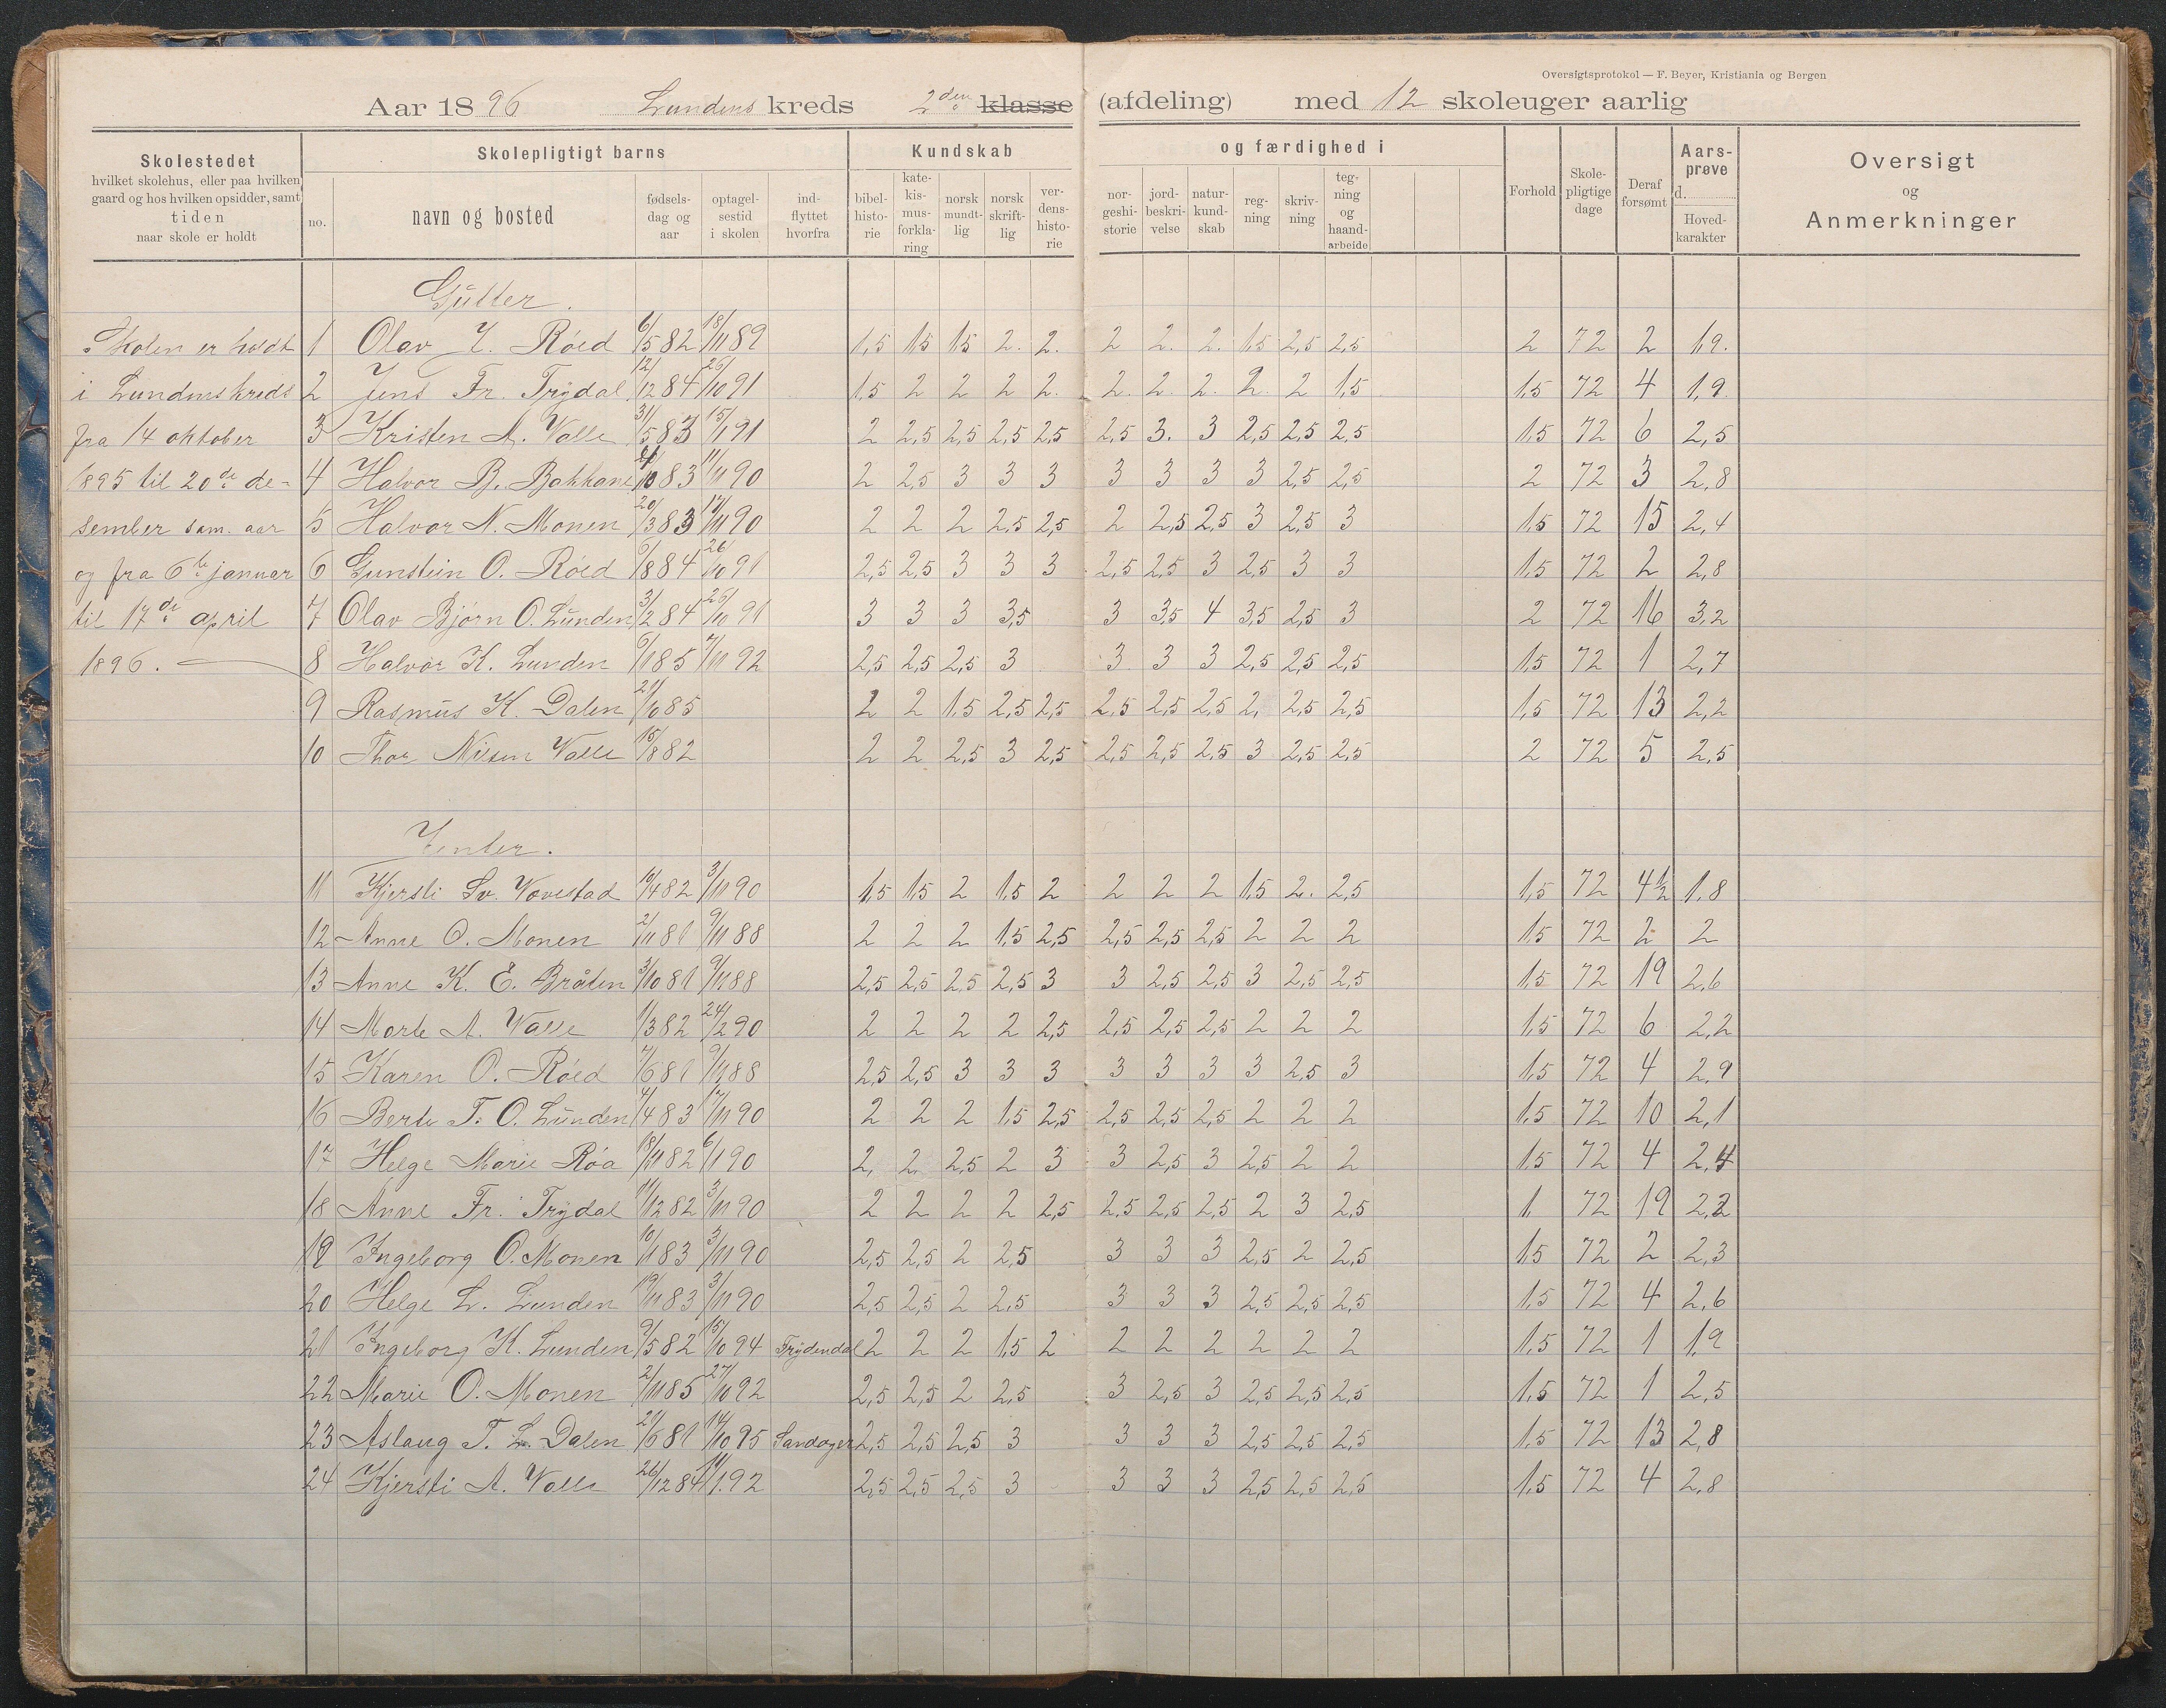 Oversigtsprotokol — F. Beyer, Kristiania og Bergen
Aar 1896 Lundens kreds 2den klasse (afdeling) med 12 skoleuger aarlig
Skolestedet
hvilket skolehus, eller paa hvilken
gaard og hos hvilken opsidder, samt
tiden
naar skole er holdt
Skolepligtigt barns
no.
navn og bosted
fødsels-
dag og
aar
optagel-
sestid
i skolen
ind-
flyttet
hvorfra
Kundskab
bibel-
histo-
rie
kate-
kis-
mus-
forkla-
ring
norsk
mundt-
lig
norsk
skrift-
lig
ver-
dens-
histo-
rie
og færdighed i
nor-
geshi-
storie
jord-
beskri-
velse
natur-
kund-
skab
reg-
ning
skriv-
ning
teg-
ning
og
haand-
arbeide
Forhold
Skole-
pligtige
dage
Deraf
forsømt
Aars-
prøve
d.
Hoved-
karakter
Oversigt
og
Anmerkninger
Skolen er holdt
i Lundenskreds
fra 14 oktober
1895 til 20de de-
sember sam. aar
og fra 6te januar
til 17de april
1896.
Gutter.
1 Olav Røed 6/5 82 18/11 89 1,5 1,5 1,5 2. 2. 2 2. 2. 1,5 2,5 2,5 2 72 2 1,9.
2 Jens Fr. Trydal 12/12 84 26/10 91 1,5 2 2 2 2. 2. 2. 2. 2. 2 1,5 1,5 72 4 1,9.
3 Kristen A. Valle 31/5 83 15/1 91 2 2,5 2,5 2,5 2,5 2,5 3. 3 2,5 2,5 2,5 1,5 72 6 2,5
4 Halvor B. Bakkane 83 11/11 90 2 2,5 3 3 3 3 3 3 3 2,5 2,5 2 72 3 2,8
5 Halvor N. Monen 20/3 83 17/11 90 2 2 2 2,5 2,5 2 2,5 2,5 3 2,5 3 1,5 72 15 2,4
6 Gunstein O. Røed 6/8 84 26/10 91 2,5 2,5 3 3 3 2,5 2,5 3 2,5 3 3 1,5 72 2 2,8
7 Olav Bjørn O. Lunden 3/2 84 26/10 91 3 3 3 3,5 3 3,5 4 3,5 2,5 3 2 72 16 3,2
8 Halvor K. Lunden 6/1 85 7/11 92 2,5 2,5 2,5 3 3 3 3 2,5 2,5 2,5 1,5 72 1 2,7
9 Rasmus K. Dalen 21/10 85 2 2 1,5 2,5 2,5 2,5 2,5 2,5 2, 2,5 2,5 1,5 72 13 2,2
10 Thor Nilsen Valle 15/8 82 2 2 2,5 3 2,5 2,5 2,5 2,5 3 2,5 2,5 2 72 5 2,5
Jenter.
11 Kjersti Sv. Vovestad 10/4 82 3/11 90 1,5 1,5 2 1,5 2 2 2 2 1,5 2. 2,5 1,5 72 4½ 1,8
12 Anne O. Monen 2/11 81 9/11 88 2 2 2 1,5 2,5 2,5 2,5 2,5 2 2 2 1,5 72 2 2
13 Anne K. E. Bråten 3/10 81 9/11 88 2,5 2,5 2,5 2,5 3 3 2,5 2,5 3 2,5 2,5 1,5 72 19 2,6
14 Marte A. Valle 1/3 82 24/2 90 2 2 2 2 2,5 2,5 2,5 2,5 2 2 2 1,5 72 6 2,2
15 Karen O. Røed 7/6 81 9/11 88 2,5 2,5 3 3 3 3 3 3 3 2,5 3 1,5 72 4 2,9
16 Berte T. O. Lunden 4/4 83 17/11 90 2 2 2 1,5 2,5 2,5 2,5 2,5 2 2 2 1,5 72 10 2,1
17 Helge Marie Røa 18/11 82 6/1 90 2, 2. 2,5 2 3 3 2,5 3 2,5 2 2 1,5 72 4 2,4
18 Anne Fr. Trydal 11/12 82 3/11 90 2 2 2 2 2,5 2,5 2,5 2,5 2 3 2,5 1 72 19 2,2
19 Ingeborg O. Monen 10/11 83 3/11 90 2,5 2,5 2 2,5 3 3 3 2,5 2 2,5 1,5 72 2 2,3
20 Helge L. Lunden 19/11 83 3/11 90 2,5 2,5 2 2,5 3 3 3 2,5 2,5 2,5 1,5 72 4 2,6
21 Ingeborg K. Lunden 9/5 82 15/10 94 Frydendal 2 2 2 1,5 2 2 2 2 2 2 2 1,5 72 1 1,9
22 Marie O. Monen 2/11 85 27/10 92 2,5 2,5 2 2,5 3 2,5 3 2,5 2,5 2,5 1,5 72 1 2,5
23 Aslaug T. L. Dalen 21/6 81 14/10 95 Sandøyer 2,5 2,5 2,5 3 3 3 3 2,5 2,5 2,5 1,5 72 13 2,8
24 Kjersti A. Valle 26/12 84 11/1 92 2,5 2,5 2,5 3 3 3 3 2,5 2,5 2,5 1,5 72 4 2,8